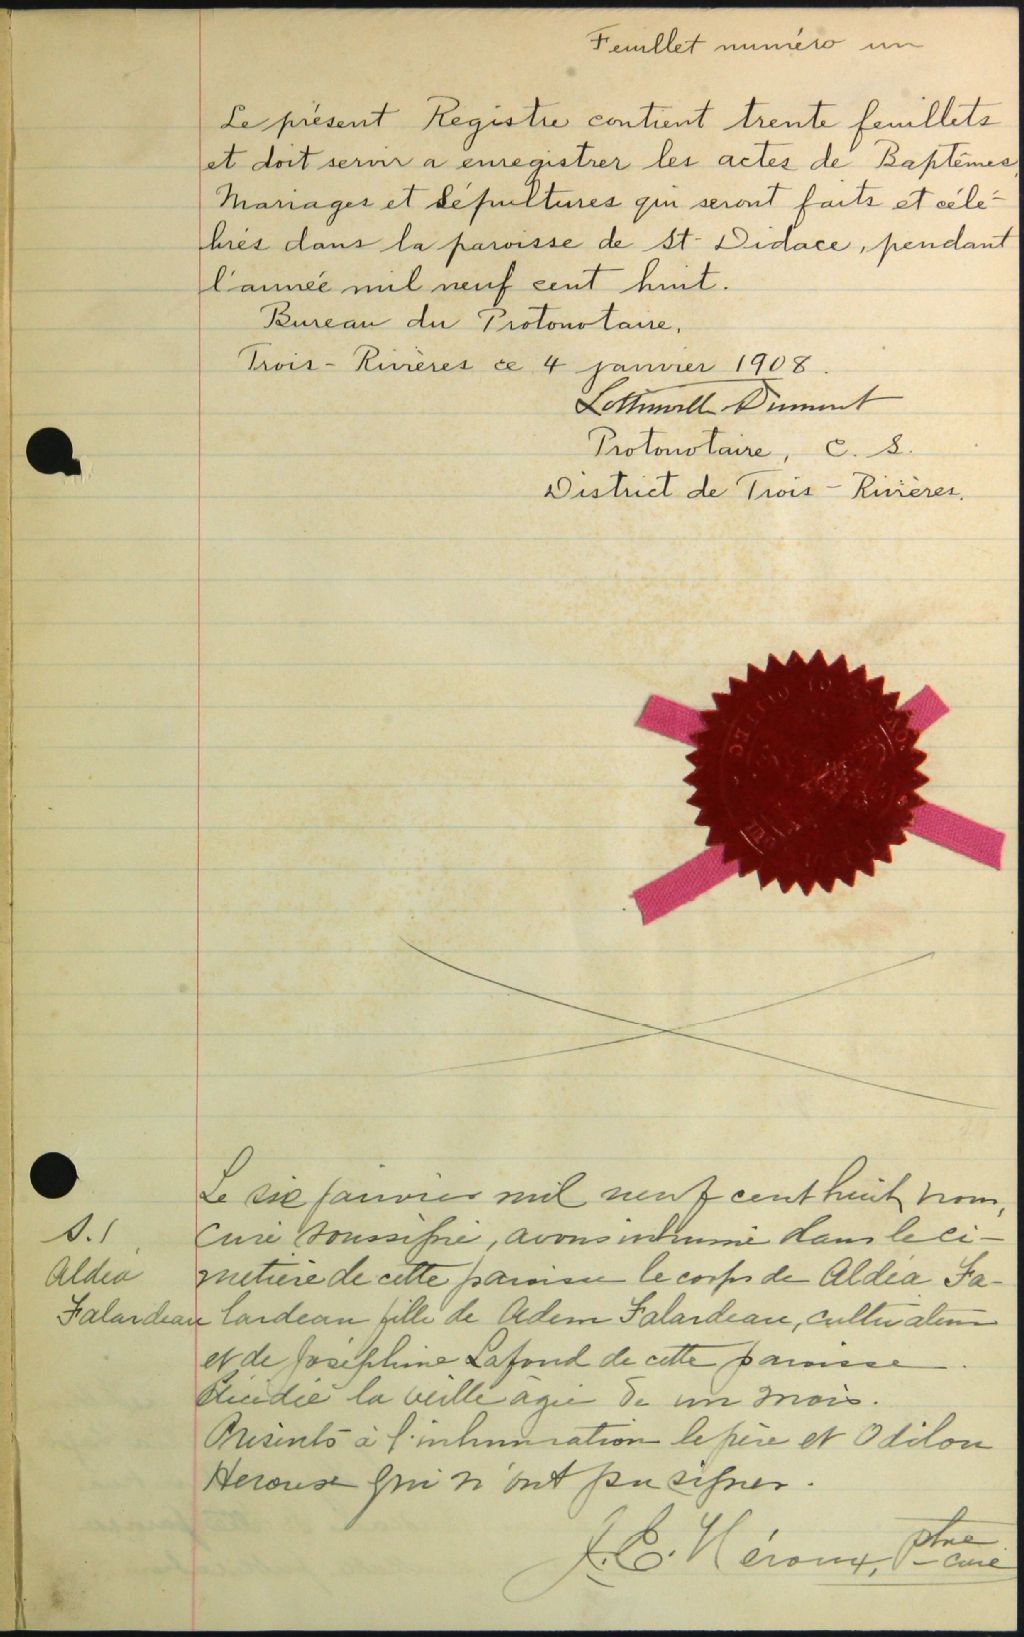 Feuillet numéro un
Le présent Registre contient trente feuillets
et doit servir a enregistrer les actes de Baptêmes,
Mariages et Sépultures qui seront faits et célé-
brés dans la paroisse de St-Didace, pendant
l'année mil neuf cent huit.
Bureau du Protonotaire,
Trois-Rivières ce 4 janvier 1908.
Lottinville Dumont
Protonotaire, C. S.
District de Trois-Rivières.
Le six janvier mil neuf cent huit, nous,
S. 1
curé soussigné, avons inhumé dans le ci-
Aldéa
metière de cette paroisse le corps de Aldéa Fa-
Falardeau
lardeau fille de Adem Falardeau, cultivateur
et de Joséphine Lafond de cette paroisse.
décédée la veille âgée de un mois.
Présents à l'inhumation le père et Odilon
Heroux qui n'ont pu signer.
J. E. Héroux, ptre
-curé